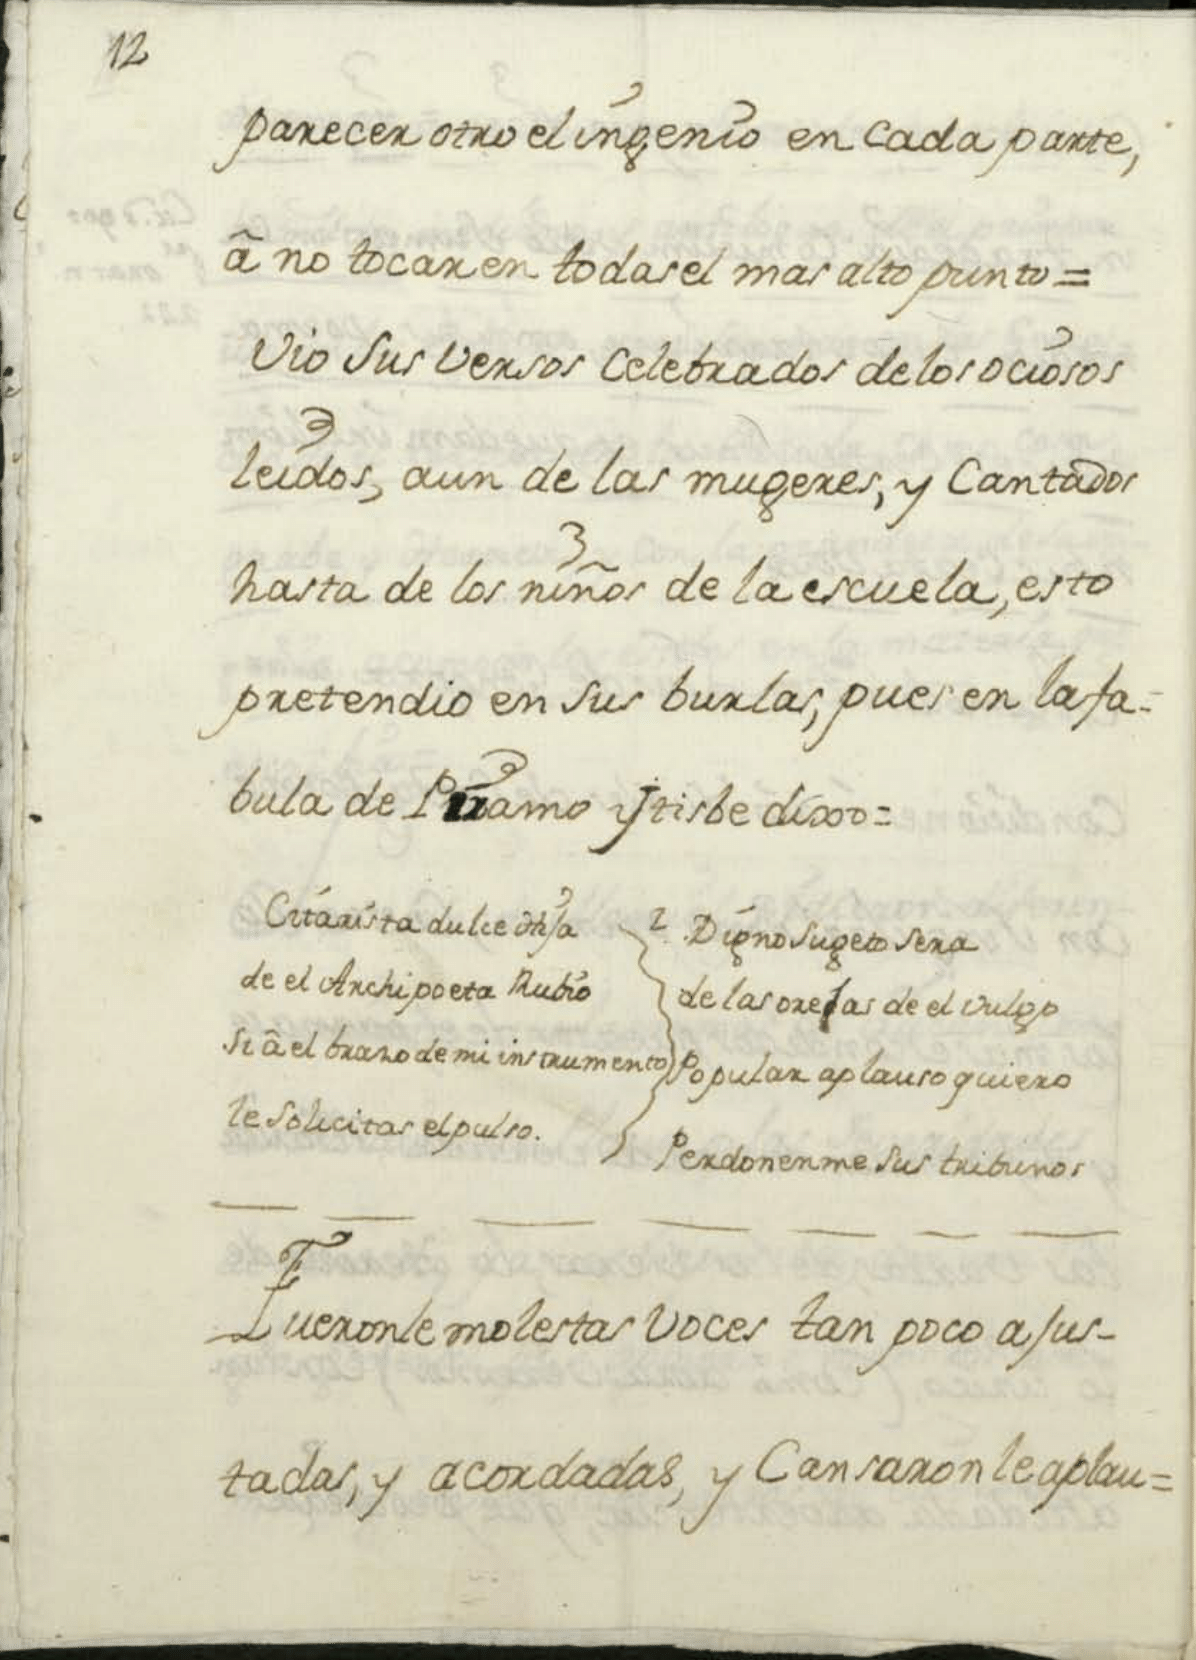 12
parecer otro el ingenio en cada parte,
â no tocar en todas el mas alto punto=
Vio sus versos celebrados de los ociosos
leidos, aun de las mugeres, y Cantados
hasta de los niños de la escuela, esto
pretendio en sus burlas, pues en la fa=
bula de Piramo y tisbe dixo=
Citarista dulce
de el Archipoeta Rubio
si â el brazo de mi instrumento
le solicitas el pulso.
2. Digno sugeto sera
de las orejas de el vulgo
Popular aplauso quiero
Perdonenme sus tribunos
Fueronle molestas voces tan poco ajus-
tadas, y acordadas, y Cansaronle aplau=